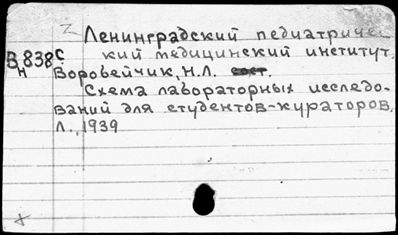 Ленинградский педиатричес
кий медицинский институт.
В 838 с
н
Воровейчик, Н.Л. сост.
Схема лабораторных исследо-
ваний для студентов-кураторов.
Л., 1939